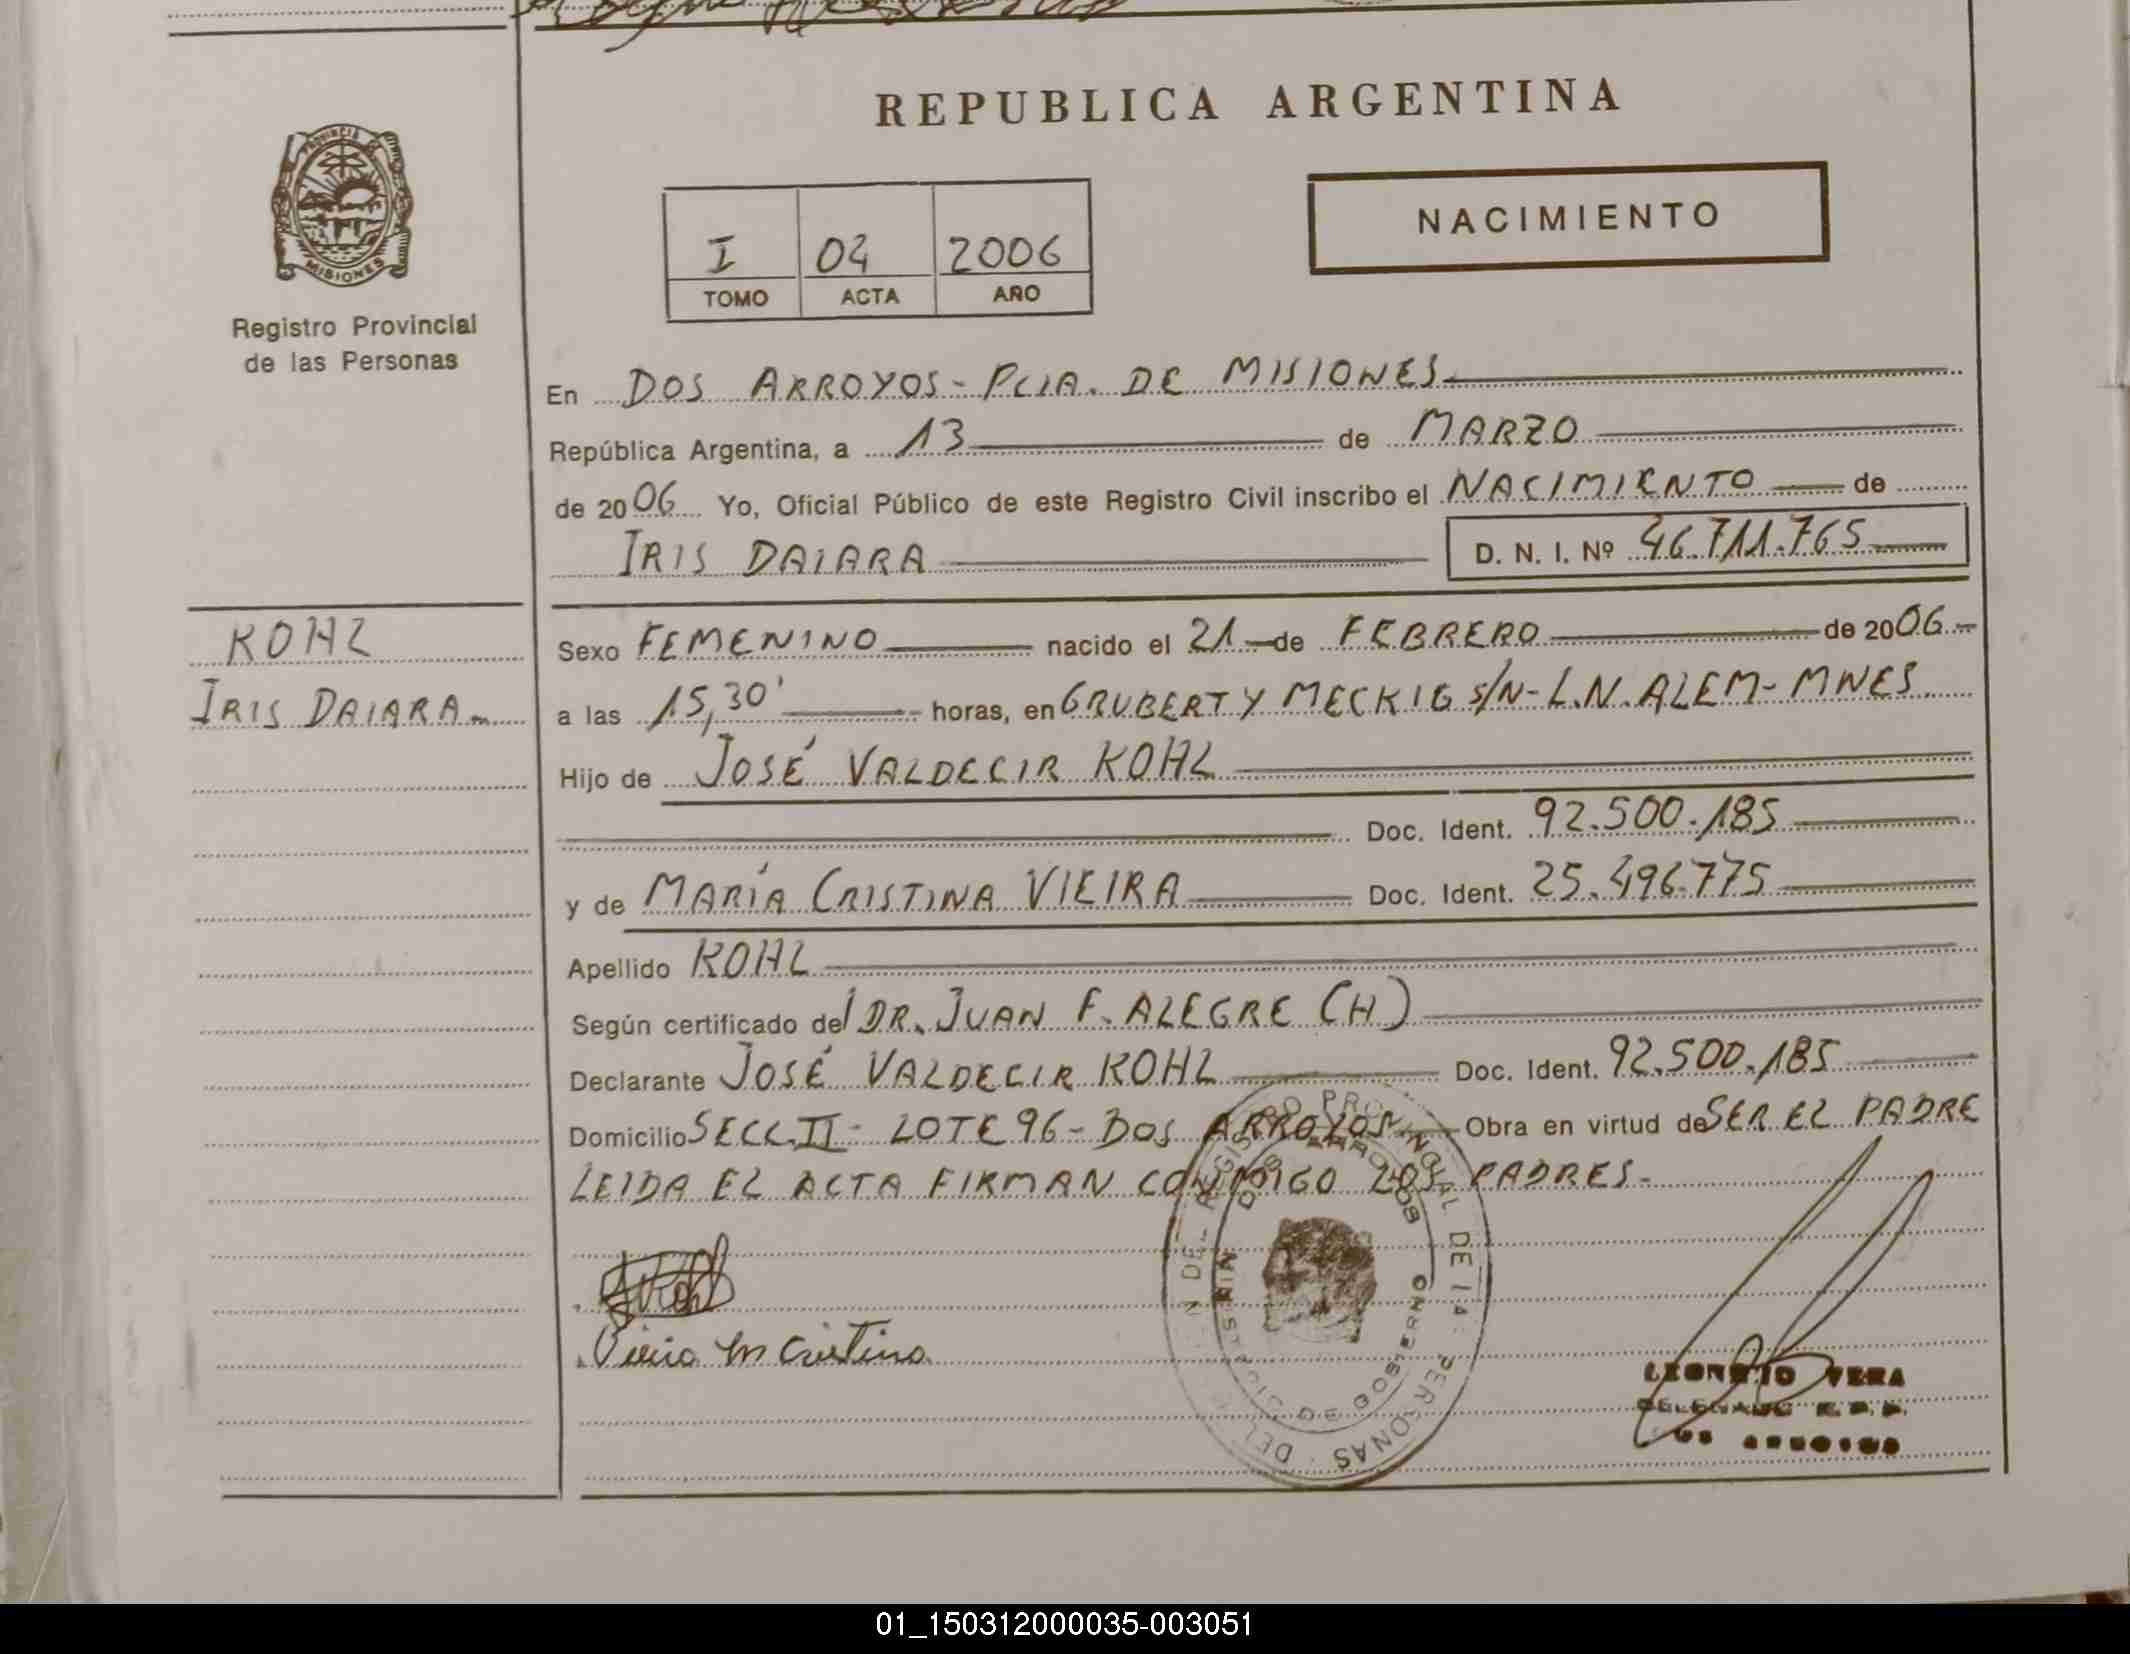 REPUBLICA ARGENTINA
PROVINCIA DE
MISIONES
Registro Provincial
de las Personas
NACIMIENTO
I 04 2006
TOMO ACTA AÑO
En DOS ARROYOS - PCIA. DE MISIONES
República Argentina, a 13 de MARZO
de 2006 Yo, Oficial Público de este Registro Civil inscribo el NACIMIENTO de
IRIS DAIARA D. N. I. Nº 46.711.765
KOHL
IRIS DAIARA
Sexo FEMENINO nacido el 21 de FEBRERO de 2006
a las 15,30' horas, en GRUBERT Y MECKIG S/N - L.N. ALEM - MNES
Hijo de JOSÉ VALDECIR KOHL
Doc. Ident. 92.500.185
y de MARÍA CRISTINA VIEIRA Doc. Ident. 25.496.775
Apellido KOHL
Según certificado del DR. JUAN F. ALEGRE (H)
Declarante JOSÉ VALDECIR KOHL Doc. Ident. 92.500.185
Domicilio SECC. II - LOTE 96 - DOS ARROYOS Obra en virtud de SER EL PADRE
LEIDA EL ACTA FIRMAN CONMIGO LOS PADRES.
REGISTRO PROVINCIAL DE LAS PERSONAS
DOS ARROYOS
MINISTERIO DE GOBIERNO
Vieira M Cristina
VERA
DELEGADO R. P. P.
01_150312000035-003051